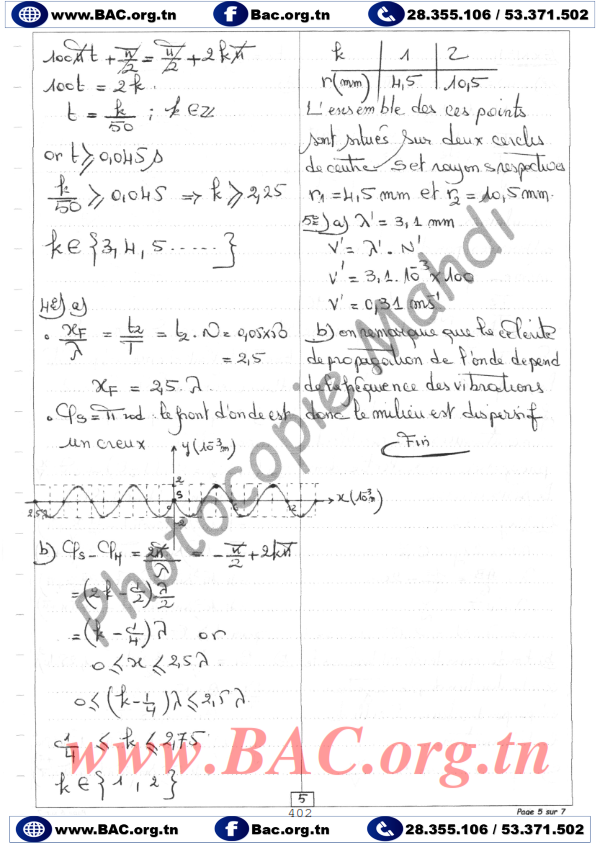 www.BAC.org.tn Bac.org.tn 28.355.106 / 53.371.502
100πt + π/2 = π/2 + 2kπ
100t = 2k.
t = k/50 ; k ∈ Z
or t ⩾ 0,045 s
k/50 ⩾ 0,045 ⇒ k ⩾ 2,25
k ∈ {3, 4, 5 ......}
4°) a)
. xF/λ = t2/T = t2 . N = 0,05x50
= 2,5
xF = 2,5 . λ
. φs = π rad. le front d'onde est
un creux
y (10⁻³m)
2
S
-2
2,5λ
12
x (10⁻³m)
b) φs - φM = 2πx/λ = - π/2 + 2kπ
= (2k - 1/2) λ/2
= (k - 1/4) λ or
0 ⩽ x ⩽ 2,5 λ
0 ⩽ (k - 1/4) λ ⩽ 2,5 λ
1/4 ⩽ k ⩽ 2,75
k ∈ {1, 2}
k 1 2
r(mm) 4,5 10,5
L'ensemble des ces points
sont situés sur deux cercles
de centre S et rayons respectives
r1 = 4,5 mm et r2 = 10,5 mm.
5°) a) λ' = 3,1 mm
v' = λ' . N'
v' = 3,1.10⁻³ x 100
v' = 0,31 ms⁻¹
b) on remarque que la célérité
de propagation de l'onde depend
de la fréquence des vibrations
donc le milieu est dispersif
Fin
Photocopie Mahdi
www.BAC.org.tn
5
402
Page 5 sur 7
www.BAC.org.tn Bac.org.tn 28.355.106 / 53.371.502